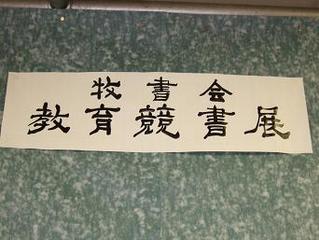 牧書会
教育競書展